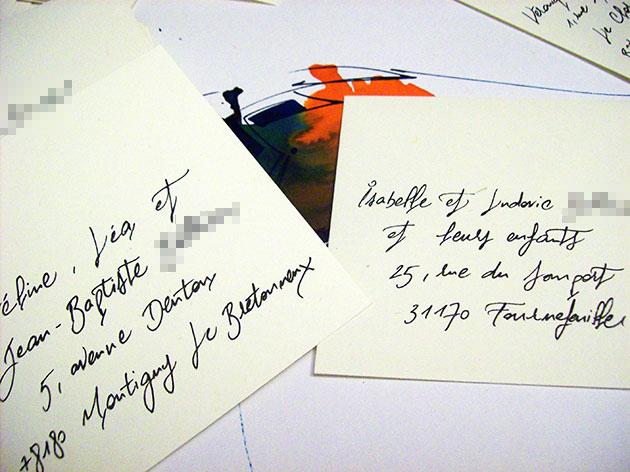 éline, Léa et
Jean-Baptiste
5, avenue
78180 Montigny Le Bretonneux
Isabelle et Ludovic
et leurs enfants
25, rue du
31170 Tournefeuille
1 rue
Le